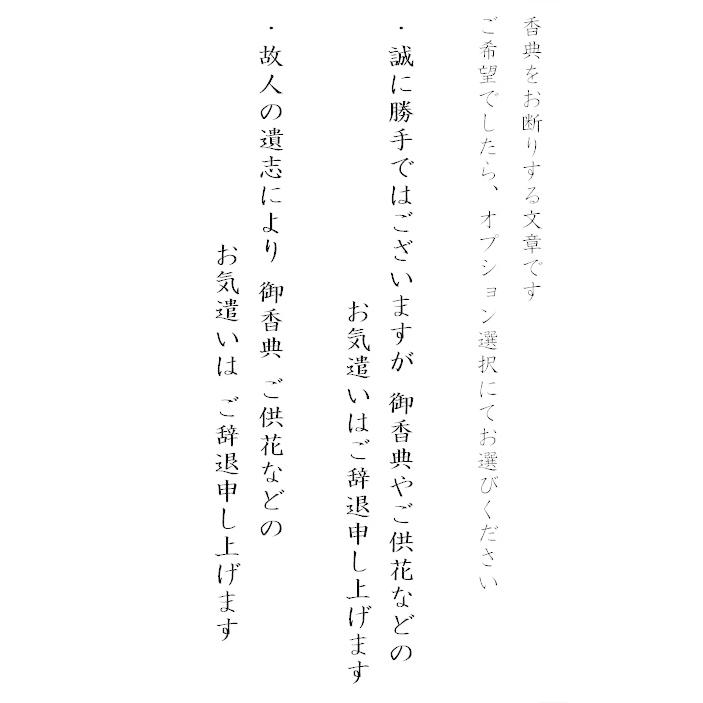 香典をお断りする文章です
ご希望でしたら、オプション選択にてお選びください
・誠に勝手ではございますが 御香典やご供花などの
お気遣いはご辞退申し上げます
・故人の遺志により 御香典 ご供花などの
お気遣いは ご辞退申し上げます